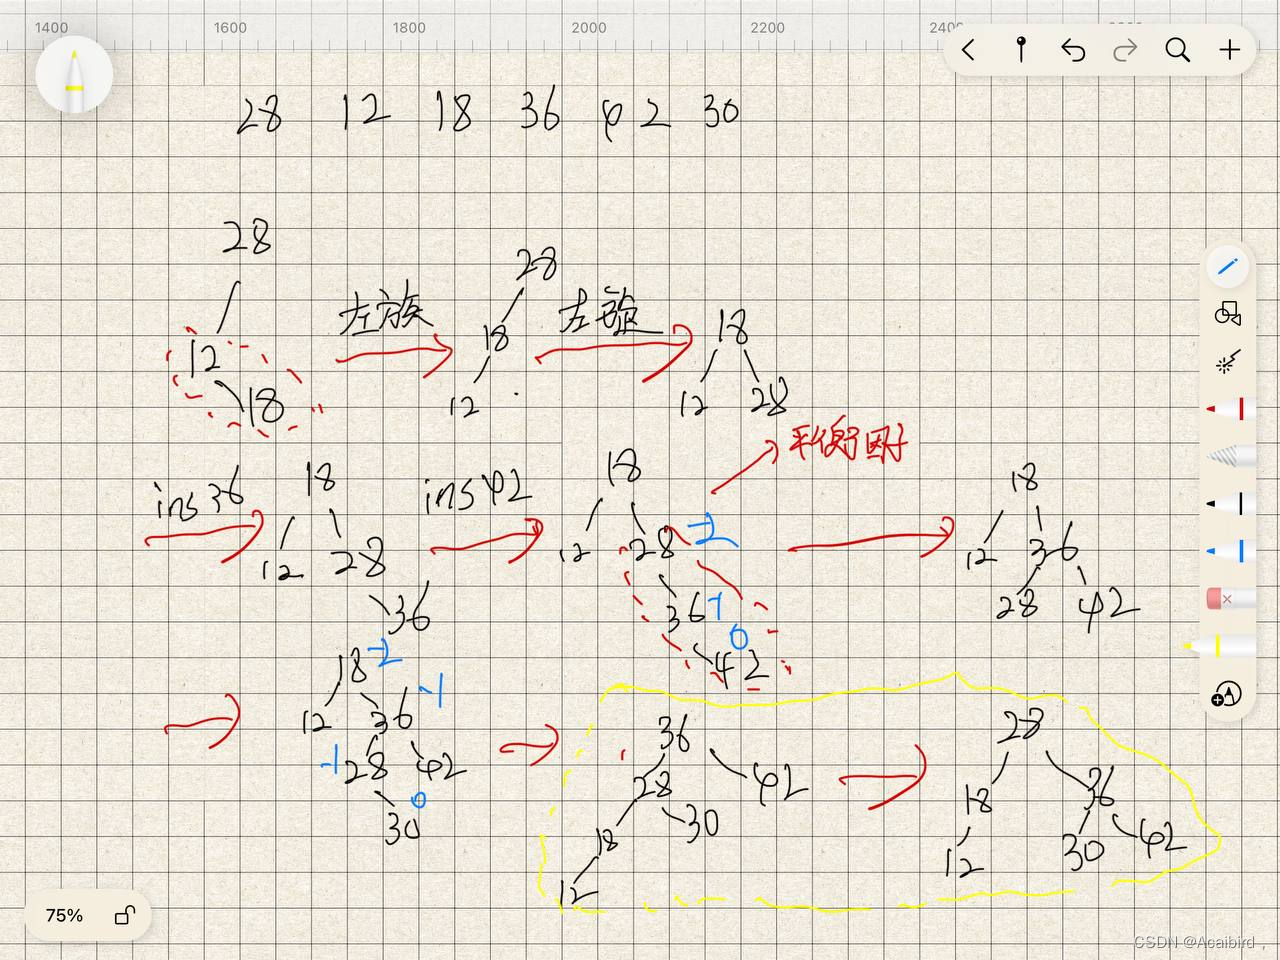 1400 1600 1800 2000 2200
28 12 18 36 42 30
28
12
18
左旋
28
18
12
左旋
18
12 28
平衡因子
ins 36
18
12 28
36
ins 42
18
12 28 -2
36 -1
0
42
18
12 36
28 42
18 -2
12 36 -1
-1 28 42
0
30
36
28 42
18 30
12
28
18 36
12 30 42
75%
CSDN @Acaibird ,